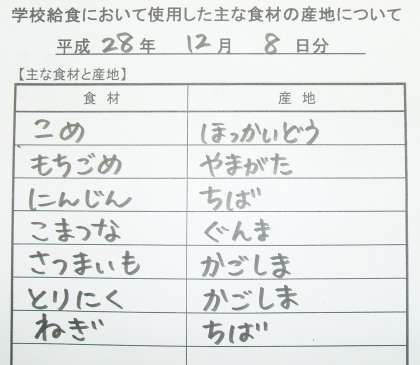 学校給食において使用した主な食材の産地について
平成 28 年 12 月 8 日分
【主な食材と産地】
食材 産地
こめ ほっかいどう
もちごめ やまがた
にんじん ちば
こまつな ぐんま
さつまいも かごしま
とりにく かごしま
ねぎ ちば